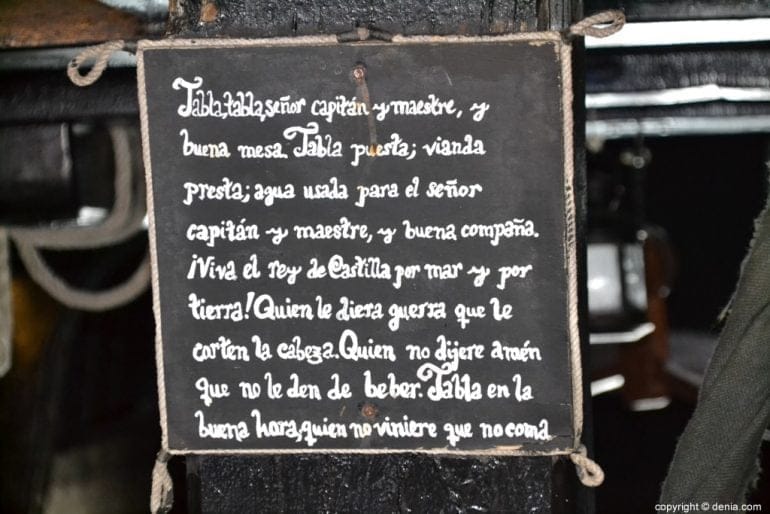 Tabla, tabla, señor capitán y maestre, y
buena mesa. Tabla puesta; vianda
presta; agua usada para el señor
capitán y maestre, y buena compaña.
¡Viva el rey de Castilla por mar y por
tierra! Quien le diera guerra que le
corten la cabeza. Quien no dijere amén
que no le den de beber. Tabla en la
buena hora, quien no viniere que no coma
copyright © denia.com